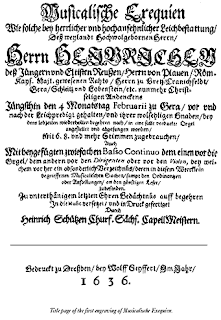 Musicalische Exequien
Wie solche bey herrlicher und hochansehnlicher Leichbestattung/
Deß weylandt Hochwolgebornen Herrn/
Herrn HEINRICHEN
deß Jüngern und Eltisten Reussen/ Herrn von Plauen/ Röm.
Kays. Mayt. gewesenen Raths/ Herrn zu
Gera/ Schleitz und Lobenstein/ etc. nunmehr Christ-
seligen Andencken/
Jüngsthin den 4 Monatstag Februarii zu Gera/ vor und
nach der Leichpredigt gehalten/ und ihrer
in eine
angestellet und abgesungen worden/
Mit 6. 8. und mehr Stimmen zugebrauchen/
Auch
Mit beygefügten zwiefachen Basso Continuo dem einen vor die
Orgel/ dem andern vor den Dirigenten oder vor den Violon/ bey
welchem vor her ein absonderlich Verzeichnüß/ derer in diesem Wercklein
begriffenen Musicalischen Sachen/ sampt den Ordinantzen
oder Anstellung/ an den günstigen Leser/
zubefinden.
Zu unterthänigem letzten Ehren Gedächtnüs auff begehren
In die Music versetzet/ und in Druck gefertiget
Durch
Heinrich Schützen Churf. Sächs. Capellmeistern.
Gedruckt zu Dreßden/ bey Wolff Seyffert/ Im Jahr/
1636.
Title page of the first engraving of Musicalische Exequien.